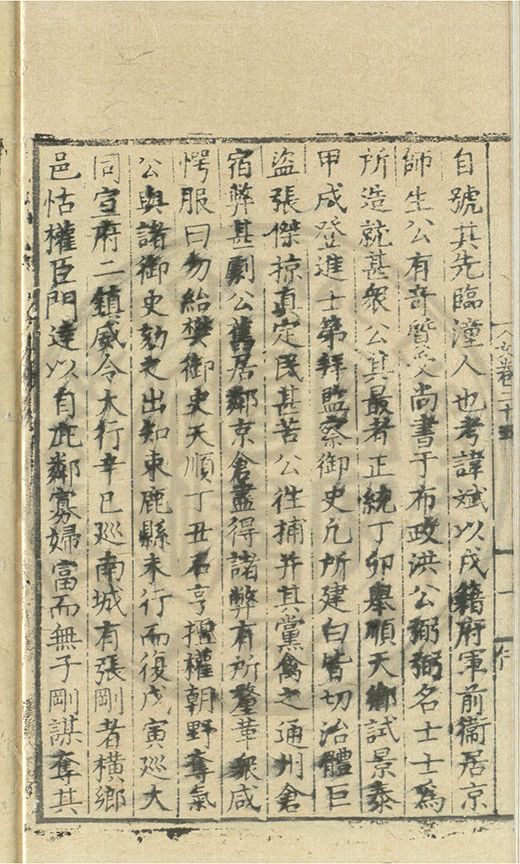 自號其先臨潼人也考諱斌以戍籍府軍前衛居京
師生公有奇受尚書于布政洪公弼弼名士士為
所造就甚衆公其最者正統丁卯舉順天鄉試景泰
甲戌登進士第拜監察御史凡所建白皆切治體巨
盜張傑掠真定民甚苦公徃捕并其黨禽之通州倉
宿弊甚劇公舊居鄰京倉盡得諸弊有所釐革衆咸
愕服曰勿紿樊御史天順丁丑石亨擅權朝野奪氣
公與諸御史劾之出知束鹿縣未行而復戊寅巡大
同宣府二鎮威令大行辛巳巡南城有張剛者橫鄉
邑怙權臣門達以自庇鄰寡婦富而無子剛謀奪其